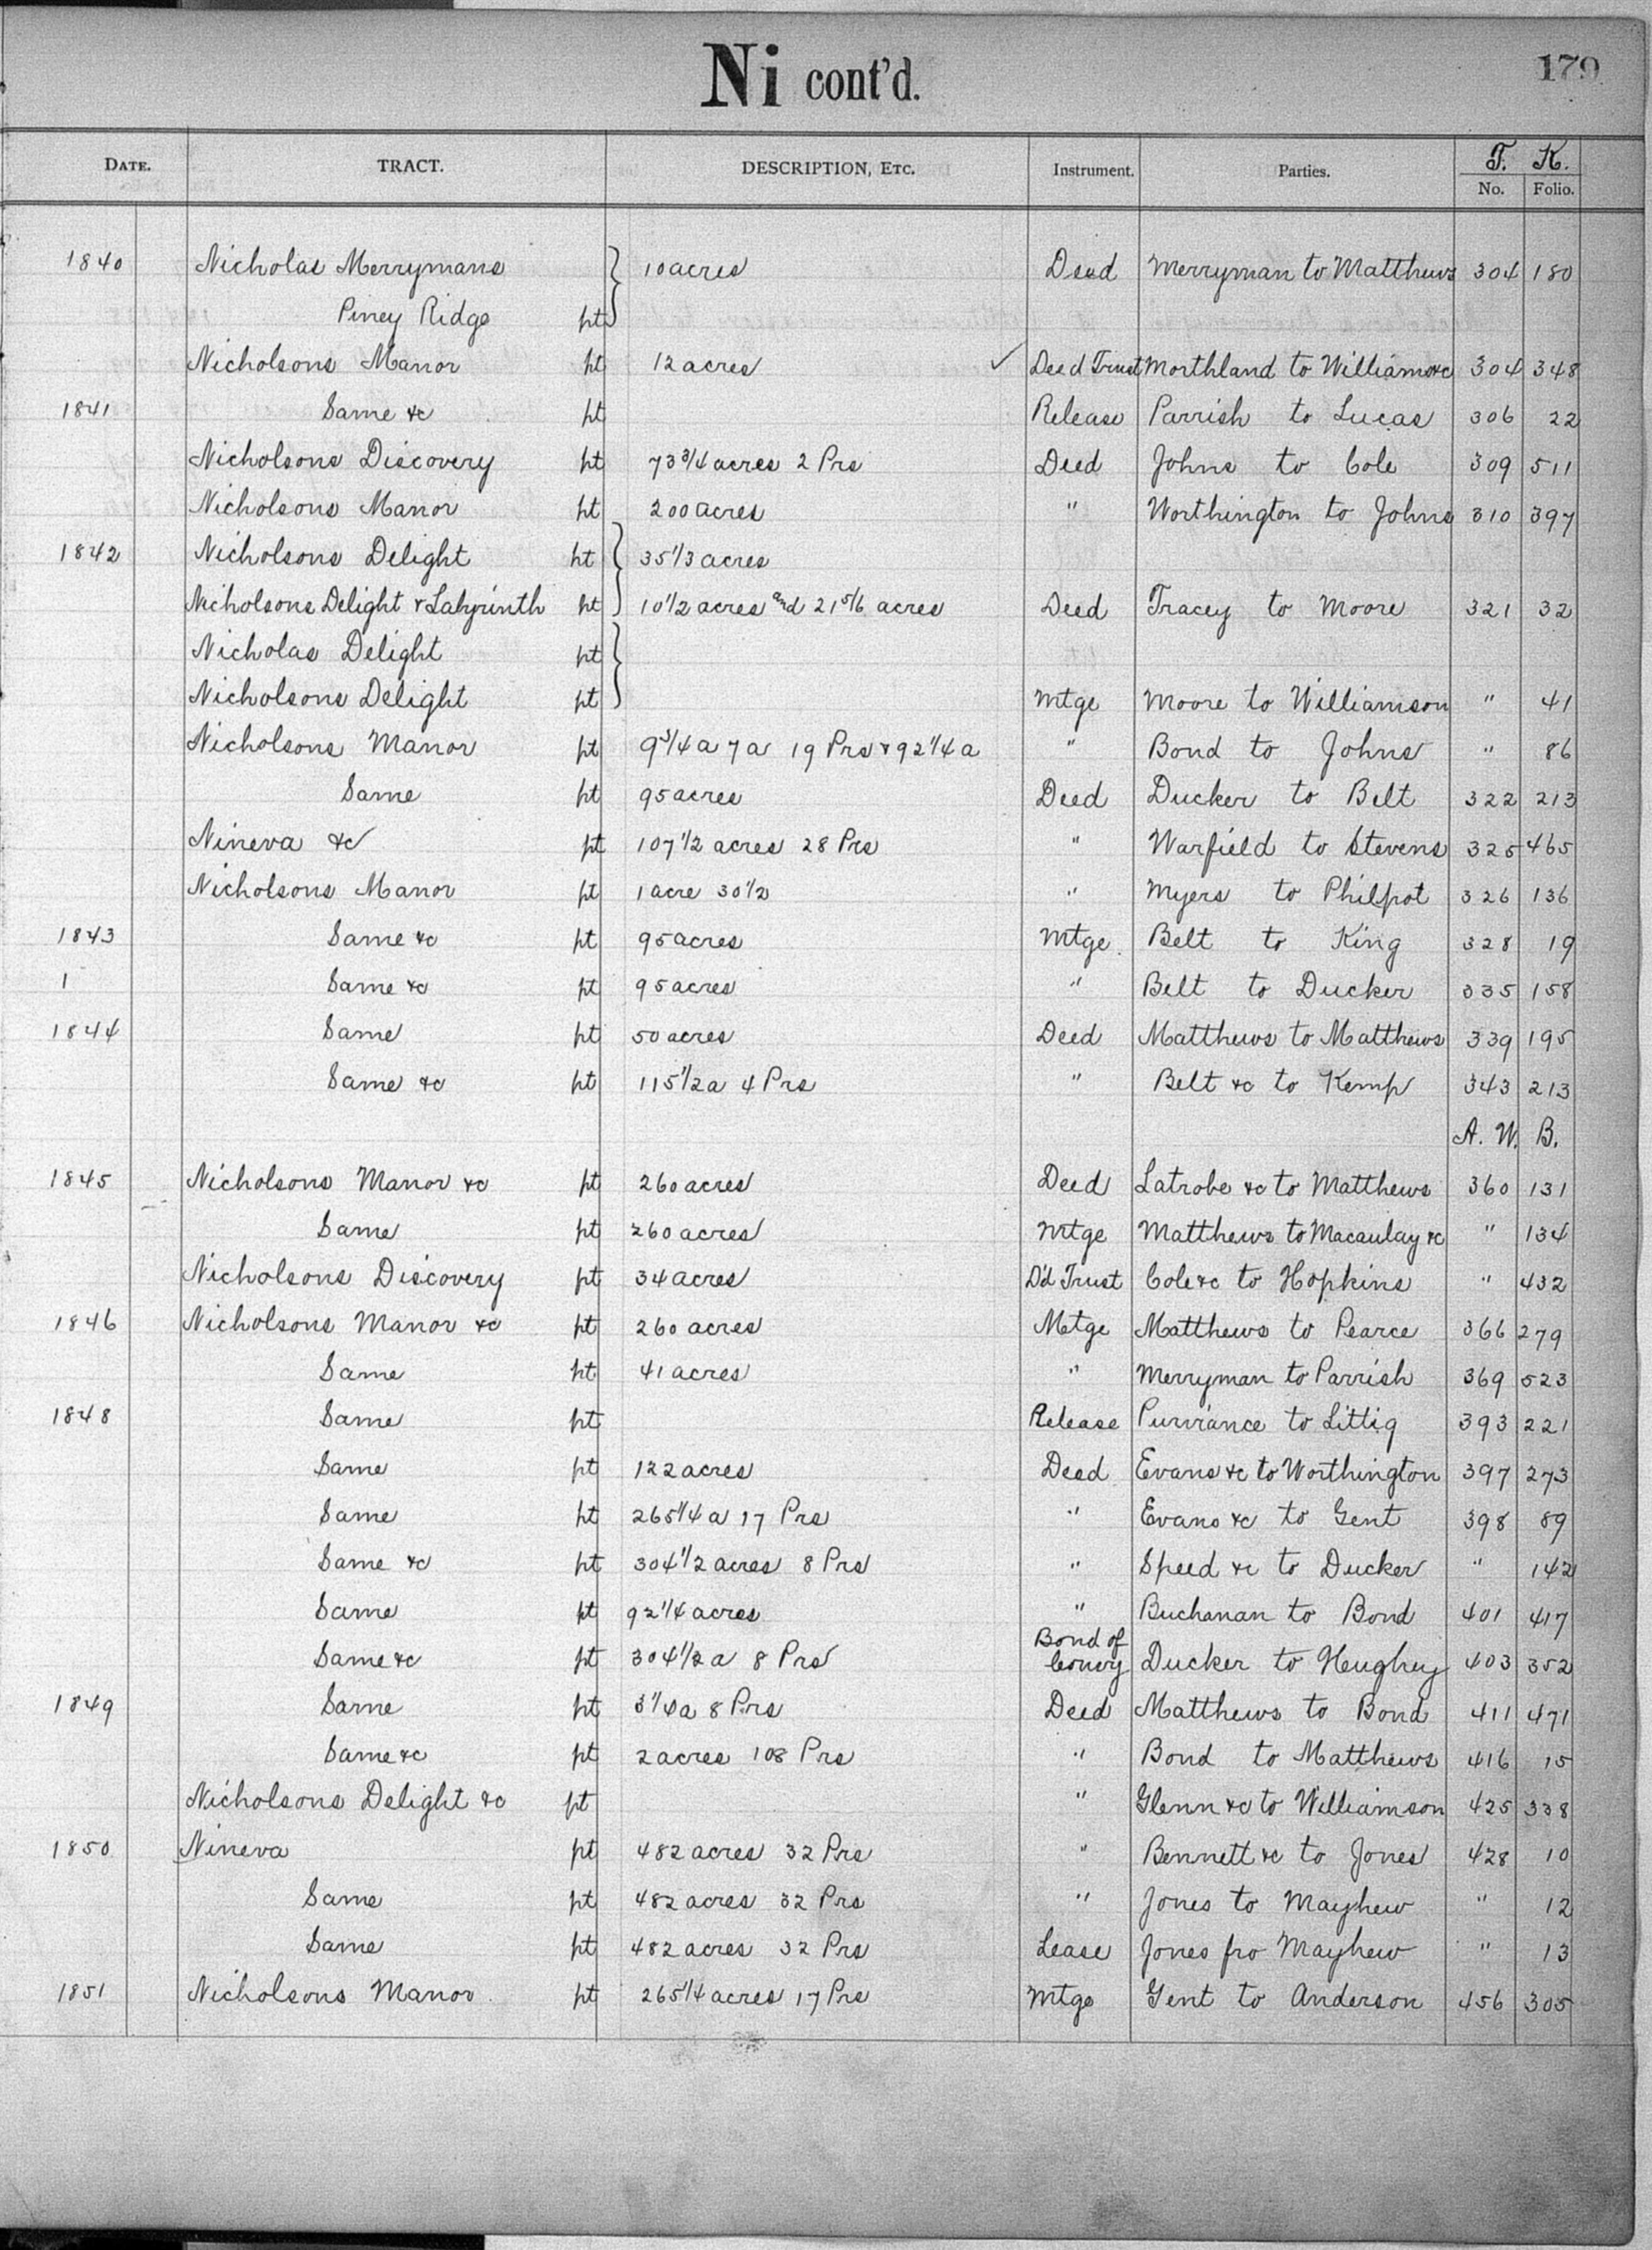 Ni cont'd.
179
DATE. TRACT. DESCRIPTION, ETC. Instrument. Parties. T. K.
No. Folio.
1840 Nicholas Merrymans 10 acres Deed Merryman to Matthews 304 180
Piney Ridge pt
Nicholsons Manor pt 12 acres ✓ Deed Trust Morthland to Williams &c 304 348
1841 Same &c pt Release Parrish to Lucas 306 22
Nicholsons Discovery pt 73 3/4 acres 2 Prs Deed Johns to Cole 309 511
Nicholsons Manor pt 200 acres " Worthington to Johns 310 397
1842 Nicholsons Delight pt 35 1/3 acres
Nicholsons Delight & Labyrinth pt 10 1/2 acres and 21 5/6 acres Deed Tracey to Moore 321 32
Nicholas Delight pt
Nicholsons Delight pt Mtge Moore to Williamson " 41
Nicholsons Manor pt 9 3/4 a 7 a 19 Prs & 92 1/4 a " Bond to Johns " 86
Same pt 95 acres Deed Ducker to Belt 322 213
Nineva &c pt 107 1/2 acres 28 Prs " Warfield to Stevens 325 465
Nicholsons Manor pt 1 acre 30 1/2 " Myers to Philpot 326 136
1843 Same &c pt 95 acres Mtge. Belt to King 328 19
1 Same &c pt 95 acres " Belt to Ducker 335 158
1844 Same pt 50 acres Deed Matthews to Matthews 339 195
Same &c pt 115 1/2 a 4 Prs " Belt &c to Kemp 343 213
A. W. B.
1845 Nicholsons Manor &c pt 260 acres Deed Latrobe &c to Matthews 360 131
Same pt 260 acres Mtge Matthews to Macaulay &c " 134
Nicholsons Discovery pt 34 acres D'd Trust Cole &c to Hopkins " 432
1846 Nicholsons Manor &c pt 260 acres Mtge Matthews to Pearce 366 279
Same pt 41 acres " Merryman to Parrish 369 523
1848 Same pt Release Purviance to Littig 393 221
Same pt 122 acres Deed Evans &c to Worthington 397 273
Same pt 265 1/4 a 17 Prs " Evans &c to Gent 398 89
Same &c pt 304 1/2 acres 8 Prs " Speed &c to Ducker " 142
Same pt 92 1/4 acres " Buchanan to Bond 401 417
Same &c pt 304 1/2 a 8 Prs Bond of Convy Ducker to Heughey 403 352
1849 Same pt 3 1/4 a 8 Prs Deed Matthews to Bond 411 471
Same &c pt 2 acres 108 Prs " Bond to Matthews 416 15
Nicholsons Delight &c pt " Glenn &c to Williamson 425 338
1850 Nineva pt 482 acres 32 Prs " Bennett &c to Jones 428 10
Same pt 482 acres 32 Prs " Jones to Mayhew " 12
Same pt 482 acres 32 Prs Lease Jones fro Mayhew " 13
1851 Nicholsons Manor pt 265 1/4 acres 17 Prs Mtge Gent to Anderson 456 305